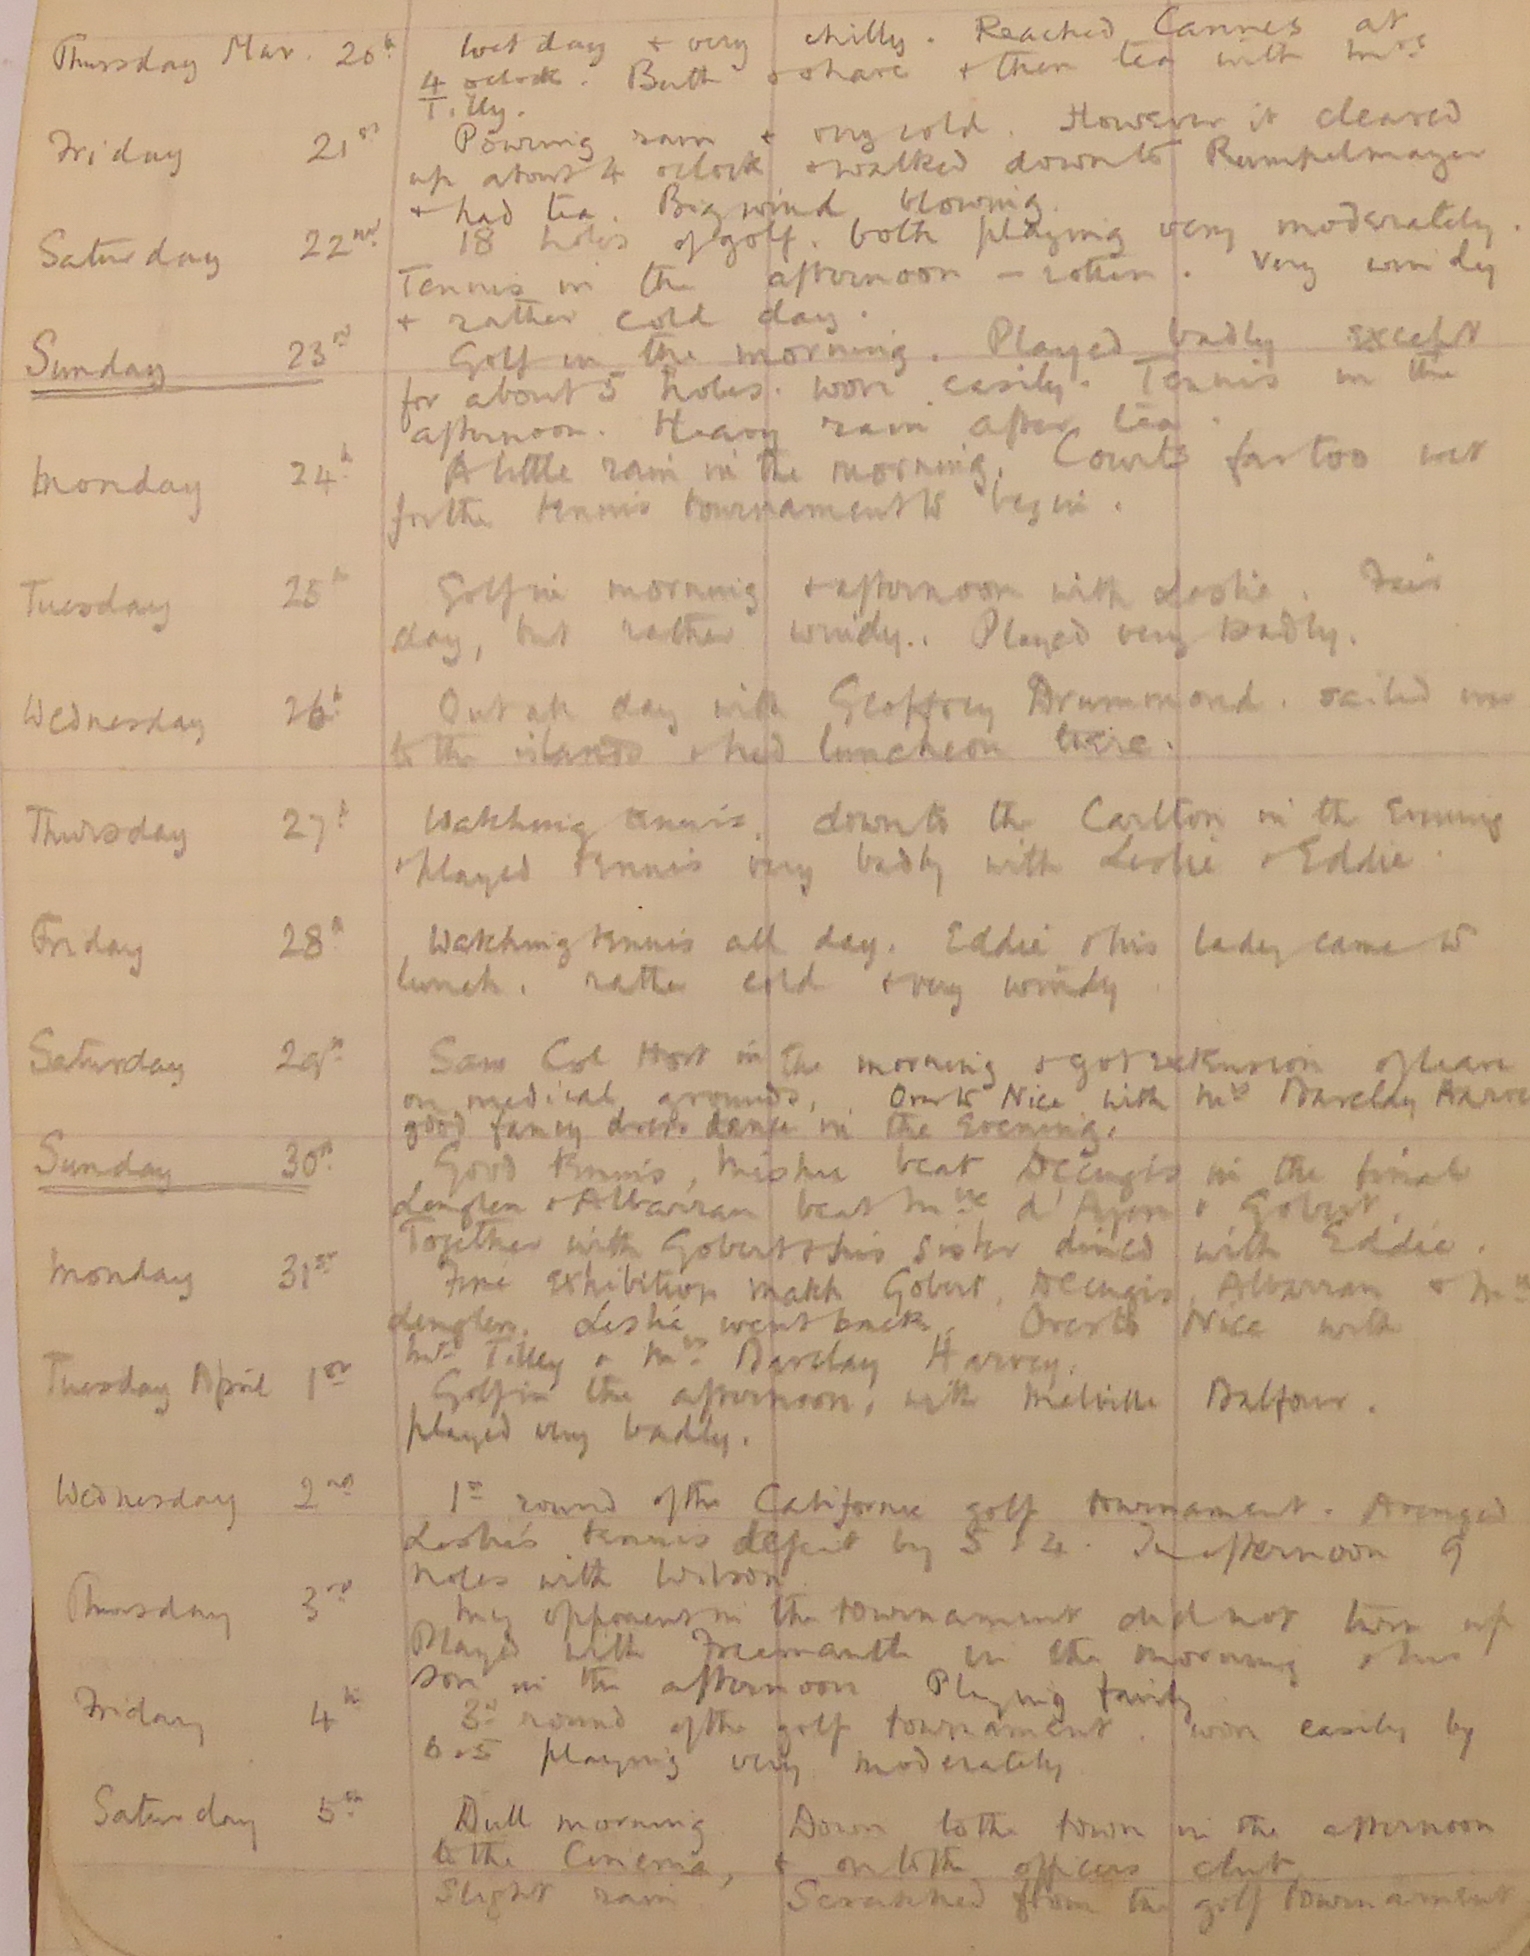 Thursday Mar. 20th Wet day + very chilly. Reached Cannes at
4 oclock. Bath + shave + then tea with Mrs
Tilly.
Friday 21st Pouring rain + very cold. However it cleared
up about 4 oclock + walked down to Rumpelmayer
+ had tea. Big wind blowing.
Saturday 22nd 18 holes of golf. both playing very moderately.
Tennis in the afternoon - rotten. Very windy
+ rather cold day.
Sunday 23rd Golf in the morning. Played badly except
for about 5 holes. won easily. Tennis in the
afternoon. Heavy rain after tea.
Monday 24th A little rain in the morning. Courts far too wet
for the tennis tournament to begin.
Tuesday 25th Golf in morning + afternoon with Leslie. Fair
day, but rather windy.. Played very badly.
Wednesday 26th Out all day with Geoffrey Drummond. sailed over
to the islands + had luncheon there.
Thursday 27th Watching tennis. down to the Carlton in the Evening
+ played tennis very badly with Leslie + Eddie.
Friday 28th Watching tennis all day. Eddie + his lady came to
lunch. rather cold + very windy
Saturday 29th Saw Col Hort in the morning + got extension of leave
on medical grounds. Over to Nice with Mrs Barclay Harvey
good fancy dress dance in the Evening.
Sunday 30th Good tennis, Mishu beat Decugis in the final
Lenglen + Albarran beat Mlle d'Ayen + Gobert.
Together with Gobert + his sister dined with Eddie.
Monday 31st Fine exhibition match Gobert, Decugis, Albarran + Mlle
Lenglen. Leslie went back. Over to Nice with
Mrs Tilley + Mrs Barclay Harvey.
Tuesday April 1st Golf in the afternoon, with Melville Balfour.
played very badly.
Wednesday 2nd 1st round of the Californie golf tournament. Avenged
Leslie's tennis defeat by 5 + 4. In afternoon 9
holes with Wilson
Thursday 3rd My opponent in the tournament did not turn up
Played with Freemantle in the morning + his
son in the afternoon Playing fairly
Friday 4th 3rd round of the golf tournament. won easily by
6 + 5 playing very moderately
Saturday 5th Dull morning Down to the town in the afternoon
to the Cinema, + on to the officers club
Slight rain Scratched from the golf tournament